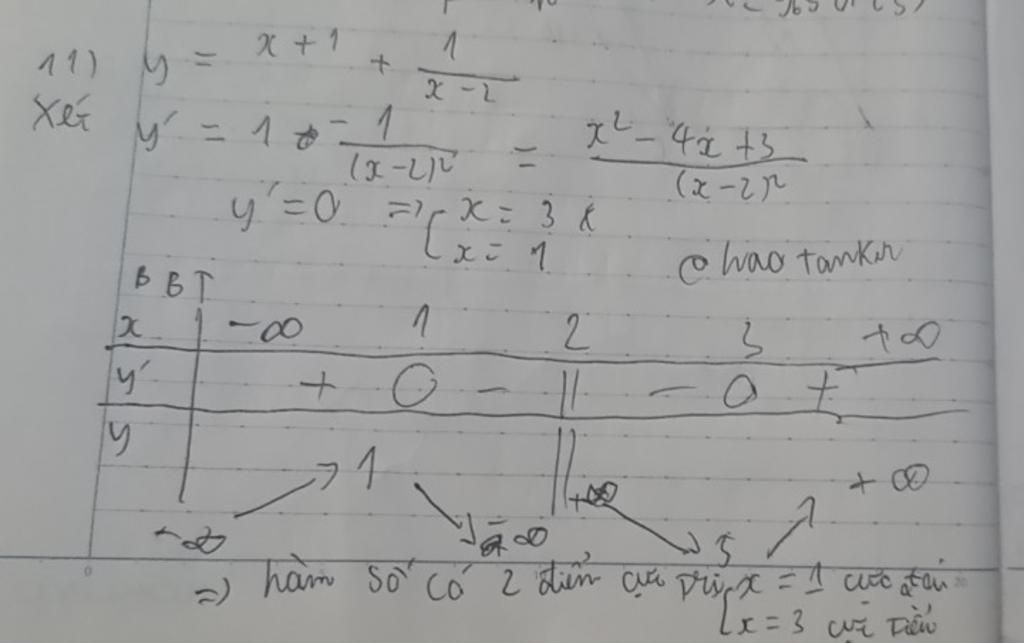 11) y = x + 1 + 1/(x - 2)
Xét y' = 1 - 1/(x-2)² = (x² - 4x + 3)/(x-2)²
y' = 0 => [ x = 3
x = 1
BBT
x -∞ 1 2 3 +∞
y' + 0 - || - 0 +
y 1 || +∞
-∞ -∞ +∞ 5
=> hàm số có 2 điểm cực trị [ x = 1 cực đại
x = 3 cực tiểu